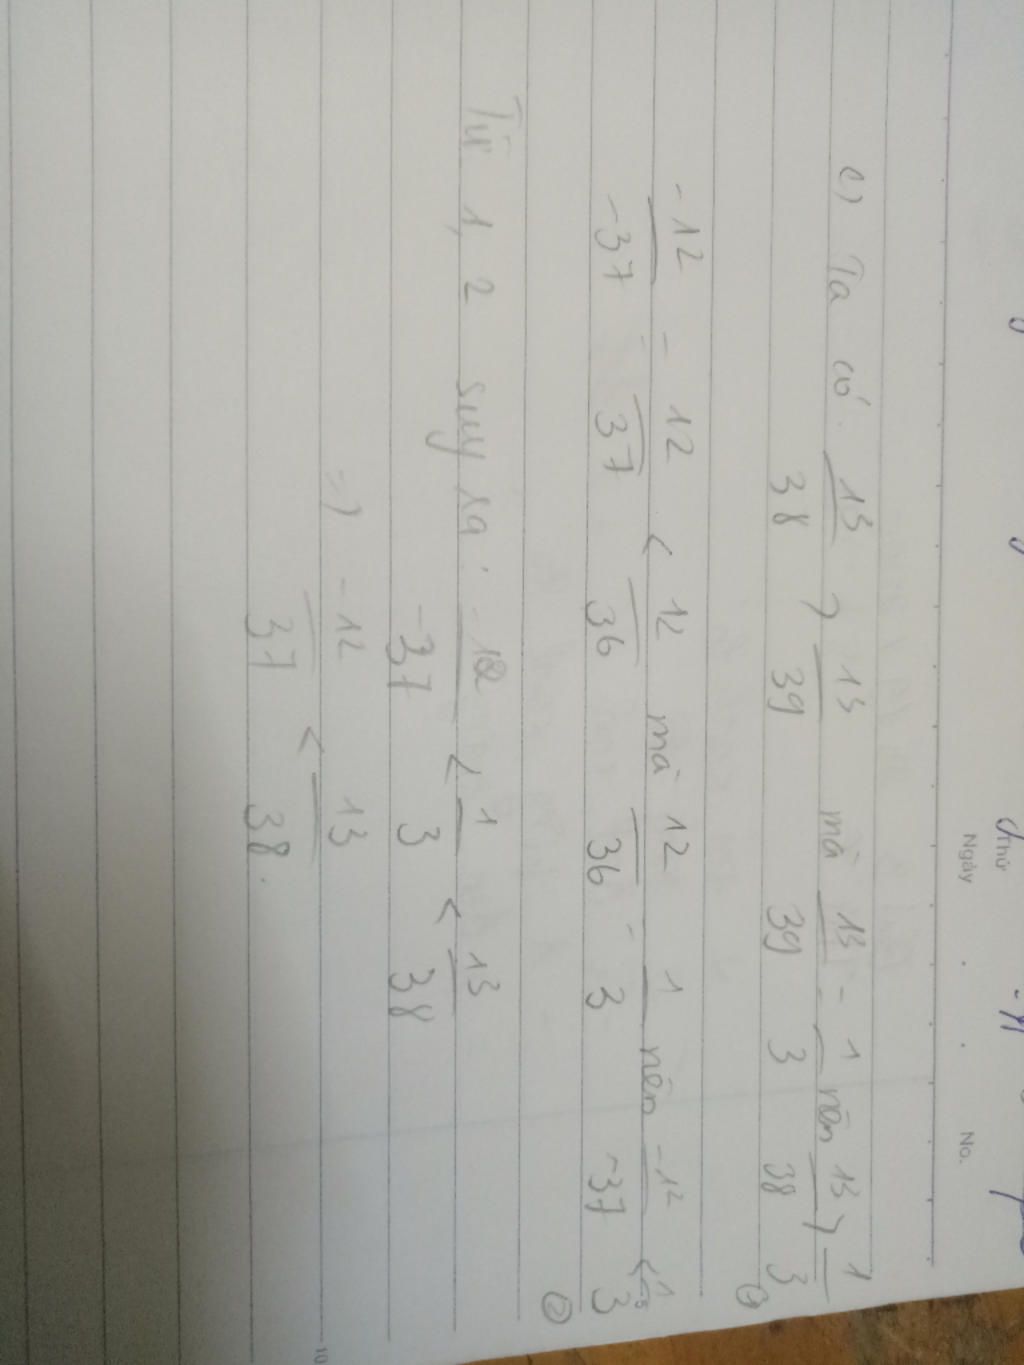 Thứ
Ngày . . No.
c) Ta có: 13/38 > 13/39 mà 13/39 = 1/3 nên 13/38 > 1/3 ①
-12/-37 = 12/37 < 12/36 mà 12/36 = 1/3 nên -12/-37 < 1/3 ②
Từ 1, 2 suy ra: -12/-37 < 1/3 < 13/38
=> -12/37 < 13/38.
10